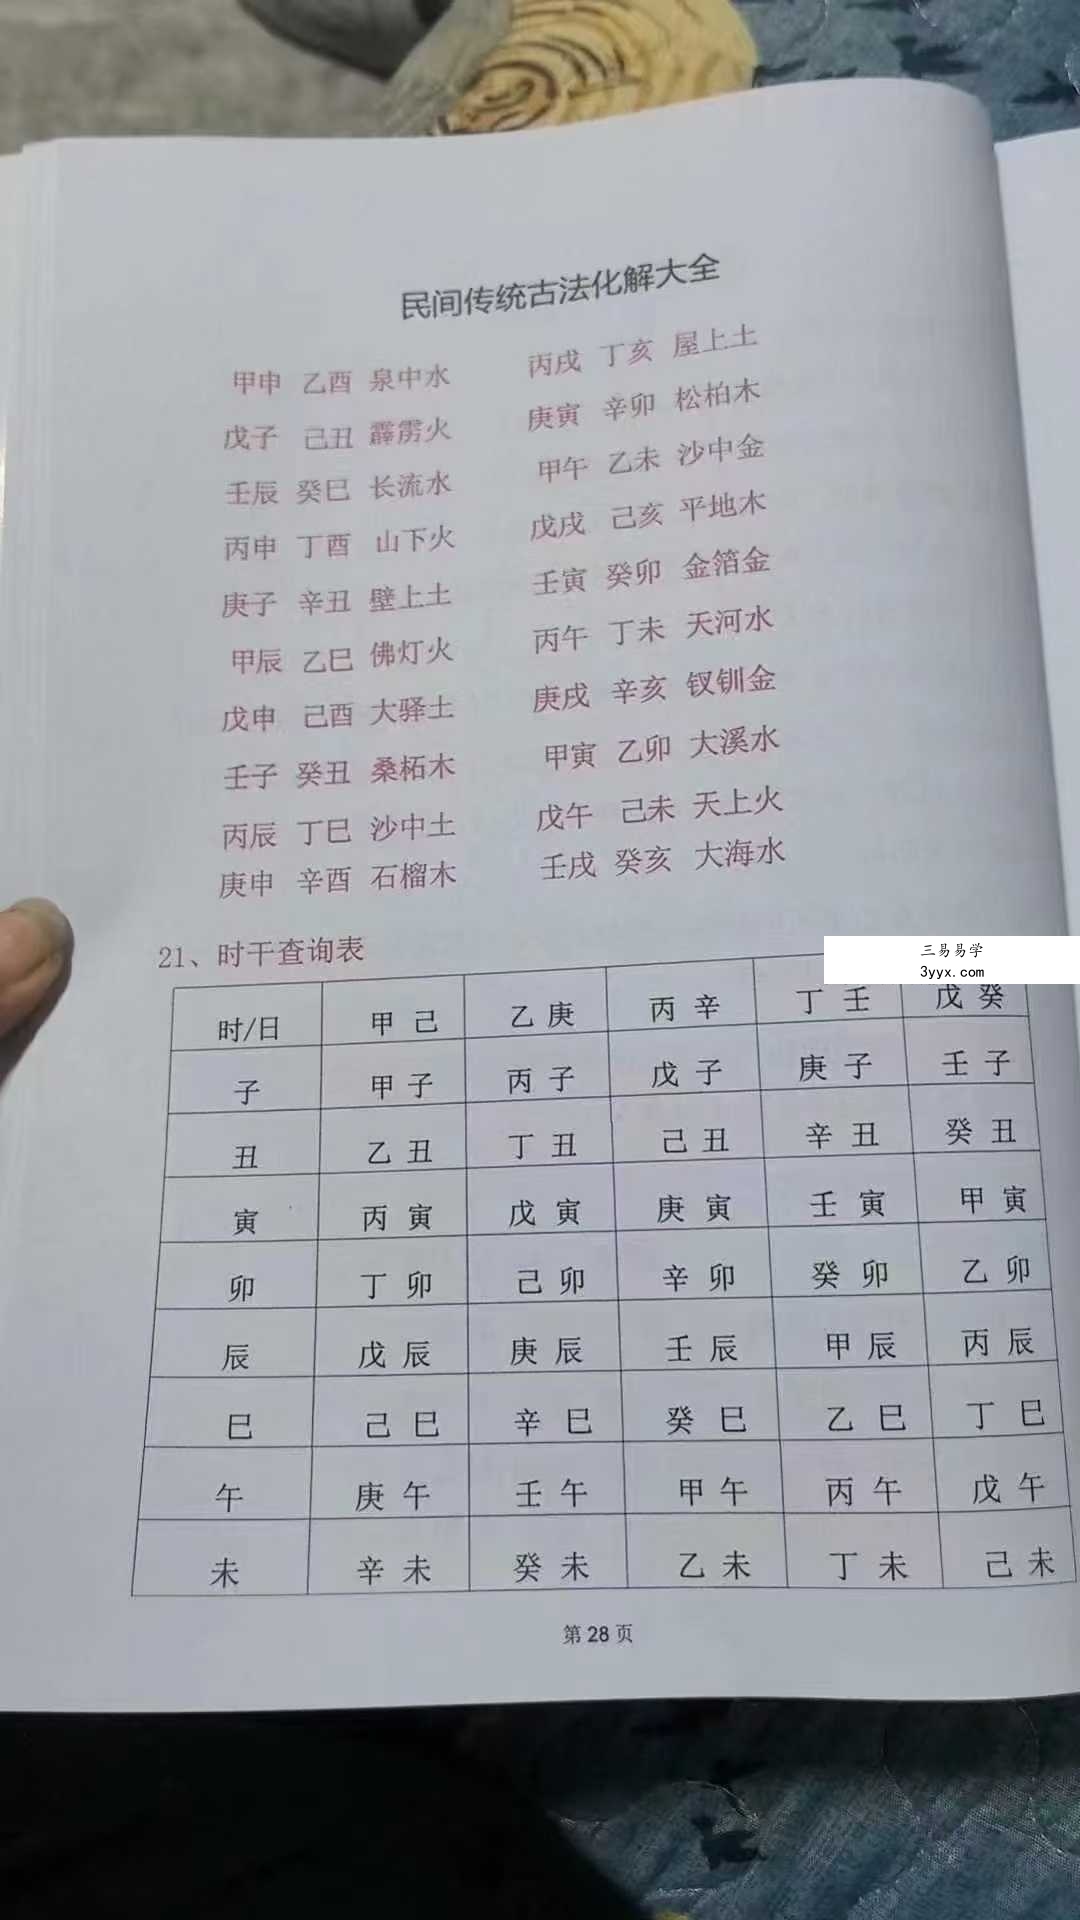 民间传统古法化解大全
甲申 乙酉 泉中水 丙戌 丁亥 屋上土
戊子 己丑 霹雳火 庚寅 辛卯 松柏木
壬辰 癸巳 长流水 甲午 乙未 沙中金
丙申 丁酉 山下火 戊戌 己亥 平地木
庚子 辛丑 壁上土 壬寅 癸卯 金箔金
甲辰 乙巳 佛灯火 丙午 丁未 天河水
戊申 己酉 大驿土 庚戌 辛亥 钗钏金
壬子 癸丑 桑柘木 甲寅 乙卯 大溪水
丙辰 丁巳 沙中土 戊午 己未 天上火
庚申 辛酉 石榴木 壬戌 癸亥 大海水
21、时干查询表
三易易学
3yyx.com
时/日 甲己 乙庚 丙辛 丁壬 戊癸
子 甲子 丙子 戊子 庚子 壬子
丑 乙丑 丁丑 己丑 辛丑 癸丑
寅 丙寅 戊寅 庚寅 壬寅 甲寅
卯 丁卯 己卯 辛卯 癸卯 乙卯
辰 戊辰 庚辰 壬辰 甲辰 丙辰
巳 己巳 辛巳 癸巳 乙巳 丁巳
午 庚午 壬午 甲午 丙午 戊午
未 辛未 癸未 乙未 丁未 己未
第 28 页